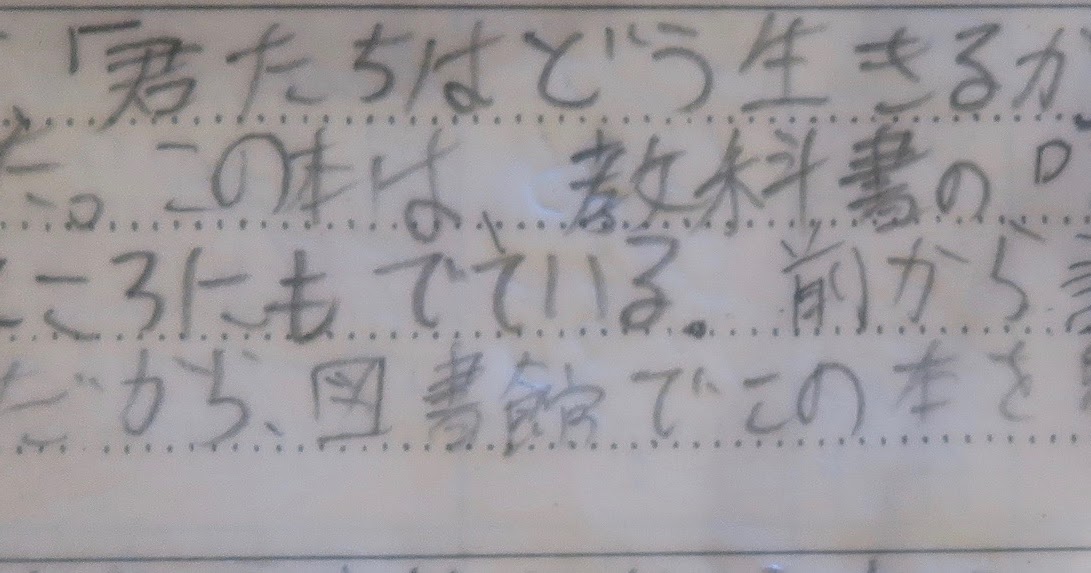 「君たちはどう生きるか
た。この本は、教科書の
ころにもでている。前から
だから、図書館でこの本を